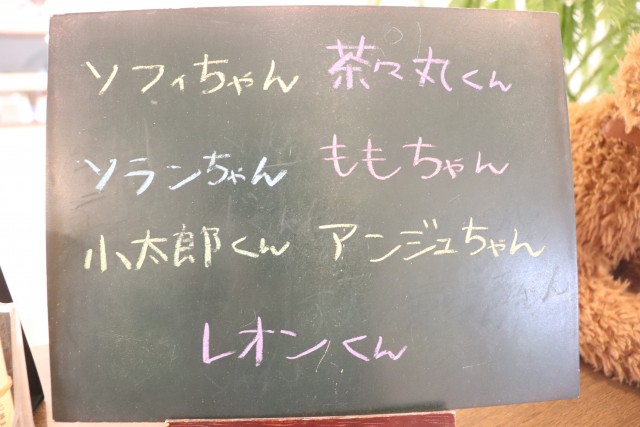 ソフィちゃん 茶々丸くん
ソランちゃん ももちゃん
小太郎くん アンジュちゃん
レオンくん